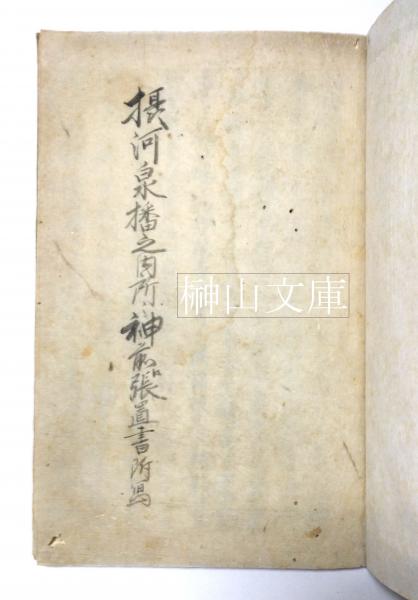 摂河泉播之内所〻神前張置書附写
榊山文庫